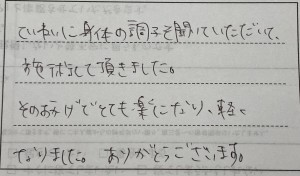 ていねいに身体の調子を聞いていただいて、
施術して頂きました。
そのおかげでとても楽になり、軽く
なりました。 ありがとうございます。